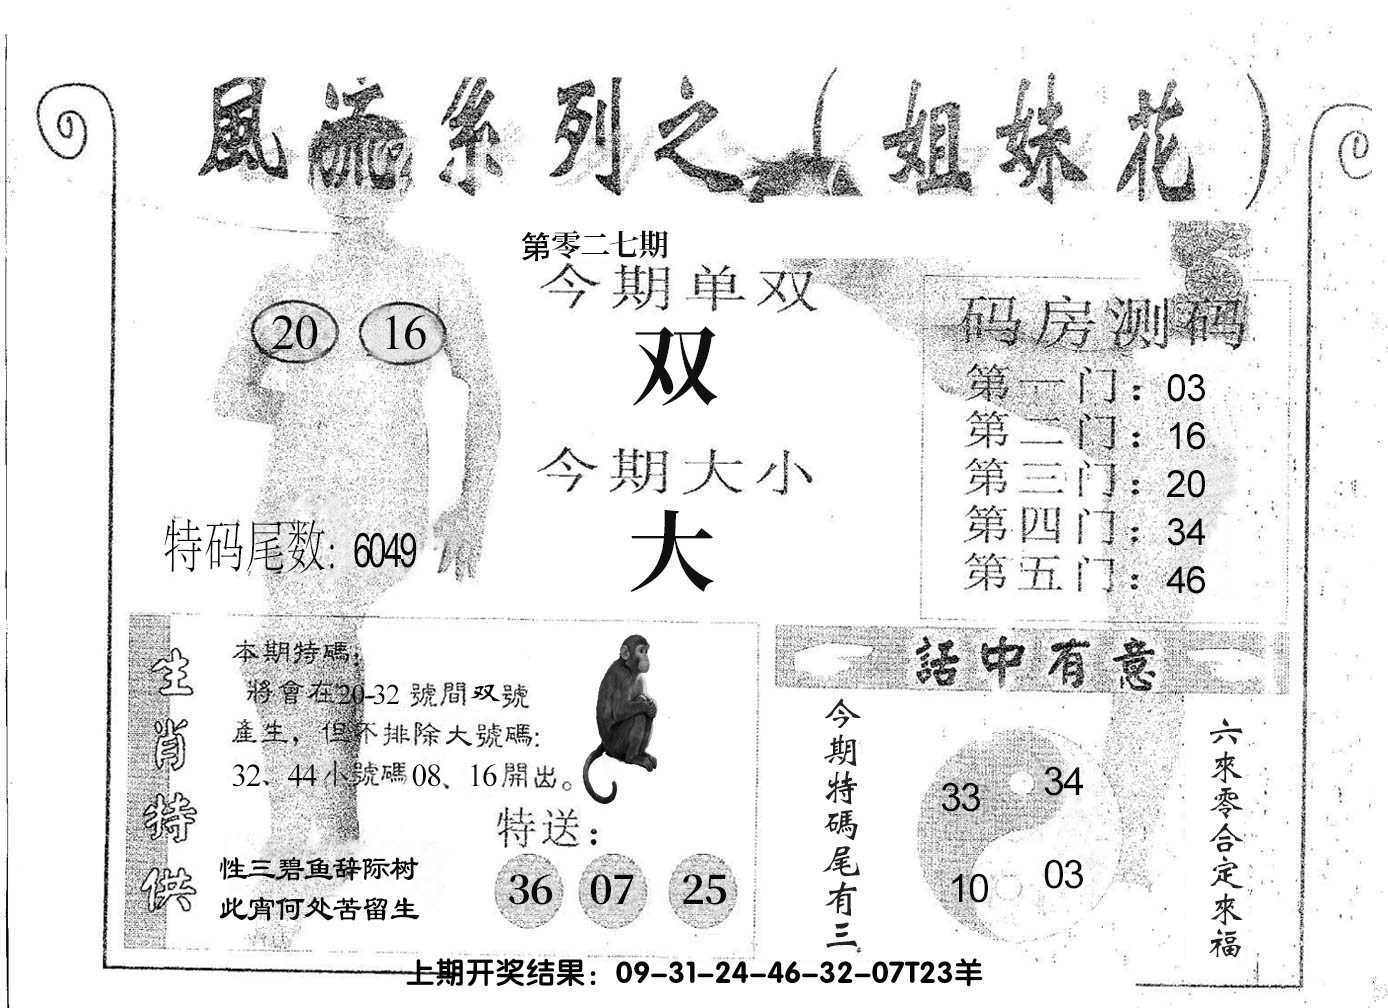 風流系列之（姐妹花）
第零二七期
今期单双
双
今期大小
大
20 16
特码尾数：6049
码房测码
第一门：03
第二门：16
第三门：20
第四门：34
第五门：46
生肖特供
本期特碼；
將會在20-32 號間双號
產生，但不排除大號碼：
32、44小號碼08、16開出。
特送：
36 07 25
性三碧鱼辞际树
此宵何处苦留生
話中有意
今期特碼尾有三
33 34
10 03
六來零合定來福
上期开奖结果：09-31-24-46-32-07T23羊